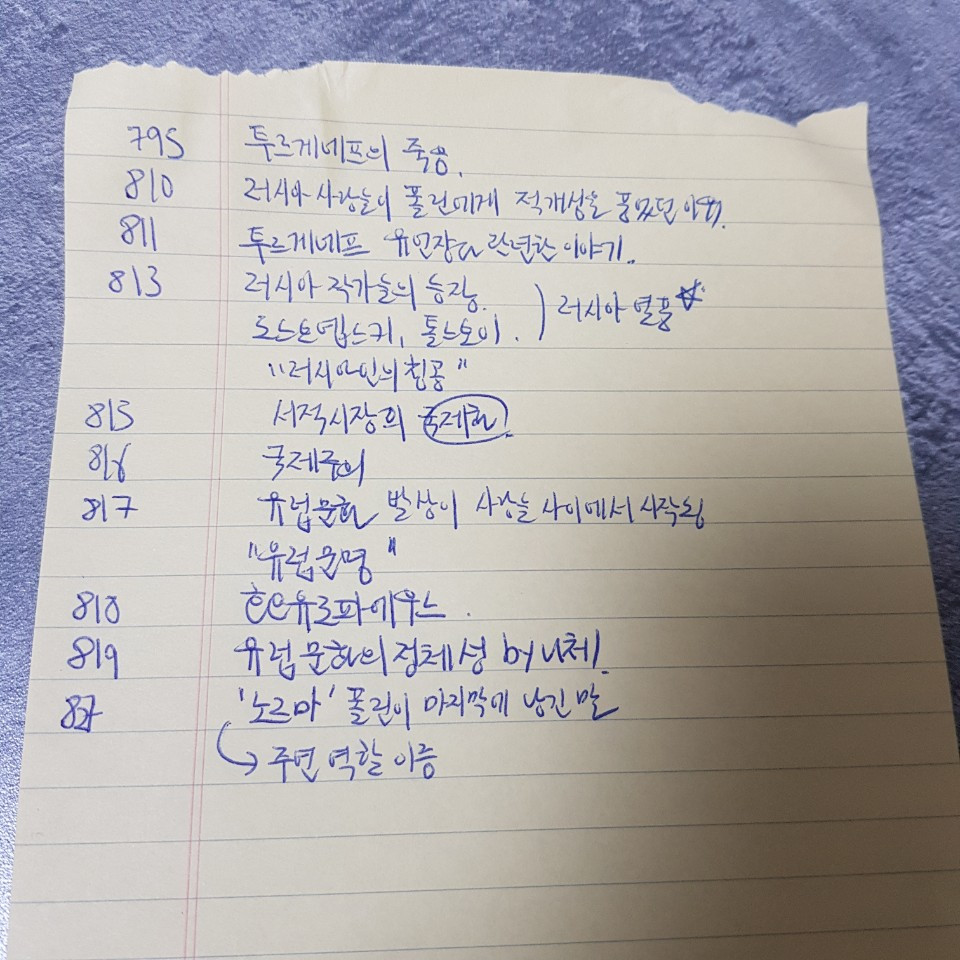 795 투르게네프의 죽음.
810 러시아 사람들이 폴린에게 적개심을 품었던 이야기.
811 투르게네프 유언장과 관련한 이야기..
813 러시아 작가들의 등장. ) 러시아 열풍☆
도스토옙스키, 톨스토이.
"러시아인의 침공"
815 서적시장의 국제화!
816 국제주의
817 유럽문화 발상이 사람들 사이에서 시작됨
"유럽문명"
818 호모유로파에우스.
819 유럽문화의 정체성 by 니체!
'노르마' 폴린이 마지막에 남긴 말
→ 주연 역할 이름